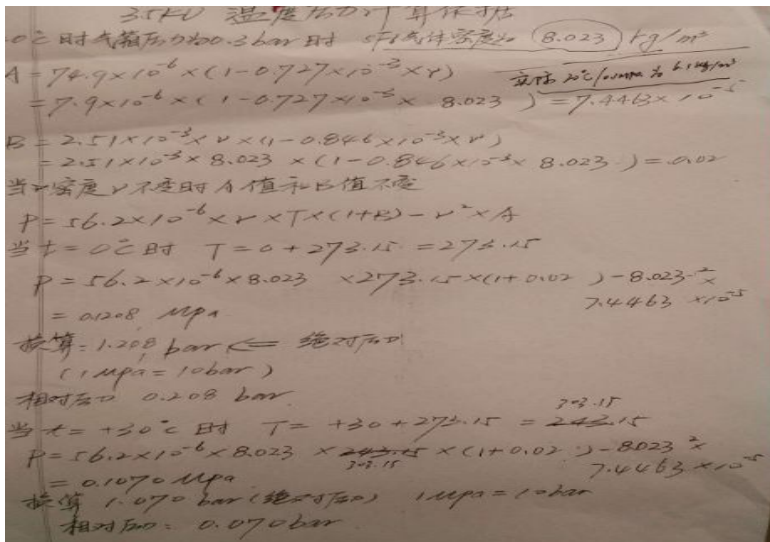 35KV 温度压力计算依据
0℃时气箱压力为0.3bar时 SF6气体密度为 8.023 kg/m³
实际 20℃/ 为 6.1kg/m³
A = 74.9×10⁻⁶×(1-0.727×10⁻³×r)
= 7.9×10⁻⁶×(1-0.727×10⁻³× 8.023 ) = 7.4463×10⁻⁵
B = 2.51×10⁻³×r×(1-0.846×10⁻³×r)
= 2.51×10⁻³×8.023×(1-0.846×10⁻³×8.023) = 0.02
当r密度r不变时A值和B值不变
P = 56.2×10⁻⁶×r×T×(1+B)-r²×A
当t=0℃时 T=0+273.15=273.15
P=56.2×10⁻⁶×8.023 ×273.15×(1+0.02 )-8.023²×
7.4463×10⁻⁵
= 0.1208 Mpa
换算:1.208 bar ⇐ 绝对压力
(1Mpa=10bar)
相对压力 0.208 bar
303.15
当t=+30℃时 T= +30+273.15 = 243.15
P=56.2×10⁻⁶×8.023 ×243.15×(1+0.02 )-8.023²×
303.15 7.4463×10⁻⁵
= 0.1070 Mpa
换算 1.070 bar(绝对压力) 1Mpa=10bar
相对压力: 0.070bar